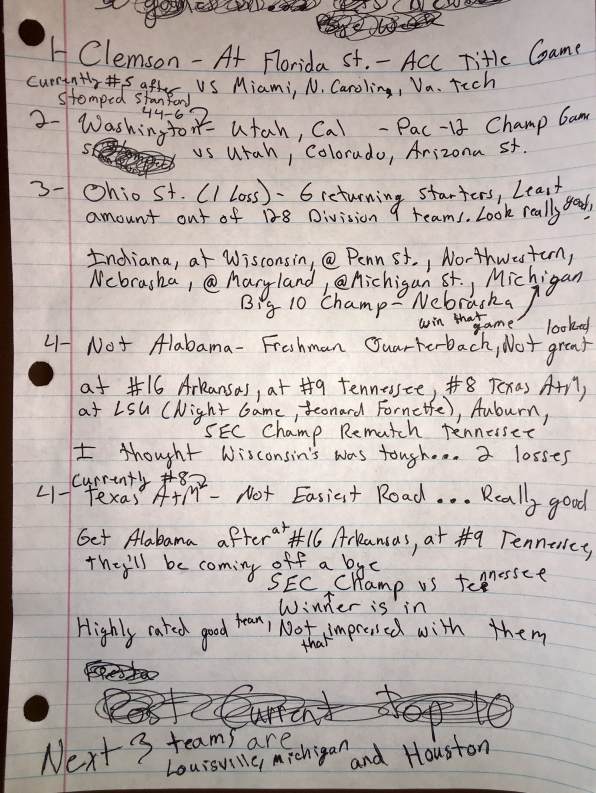 1- Clemson - At Florida St. - ACC Title Game
Currently #5 after vs Miami, N. Carolina, Va. Tech
stomped Stanford
44-6
2- Washington - Utah, Cal - Pac-12 Champ Game
vs Utah, Colorado, Arizona St.
3- Ohio St. (1 Loss) - 6 returning starters, Least
amount out of 128 Division 1 teams. Look really good,
Indiana, at Wisconsin, @ Penn St., Northwestern,
Nebraska, @ Maryland, @ Michigan St., Michigan
Big 10 Champ - Nebraska
win that game
4- Not Alabama - Freshman Quarterback, Not looked great
at #16 Arkansas, at #9 Tennessee, #8 Texas A+M,
at LSU (Night Game, Leonard Fornette), Auburn,
SEC Champ Rematch Tennessee
I thought Wisconsin's was tough... 2 losses
Currently #8
4- Texas A+M - Not Easiest Road ... Really good
Get Alabama after at #16 Arkansas, at #9 Tennessee,
they'll be coming off a bye
SEC Champ vs Tennessee
Winner is in
Highly rated good team, Not that impressed with them
Post Current Top 10
Next 3 teams are
Louisville, Michigan and Houston